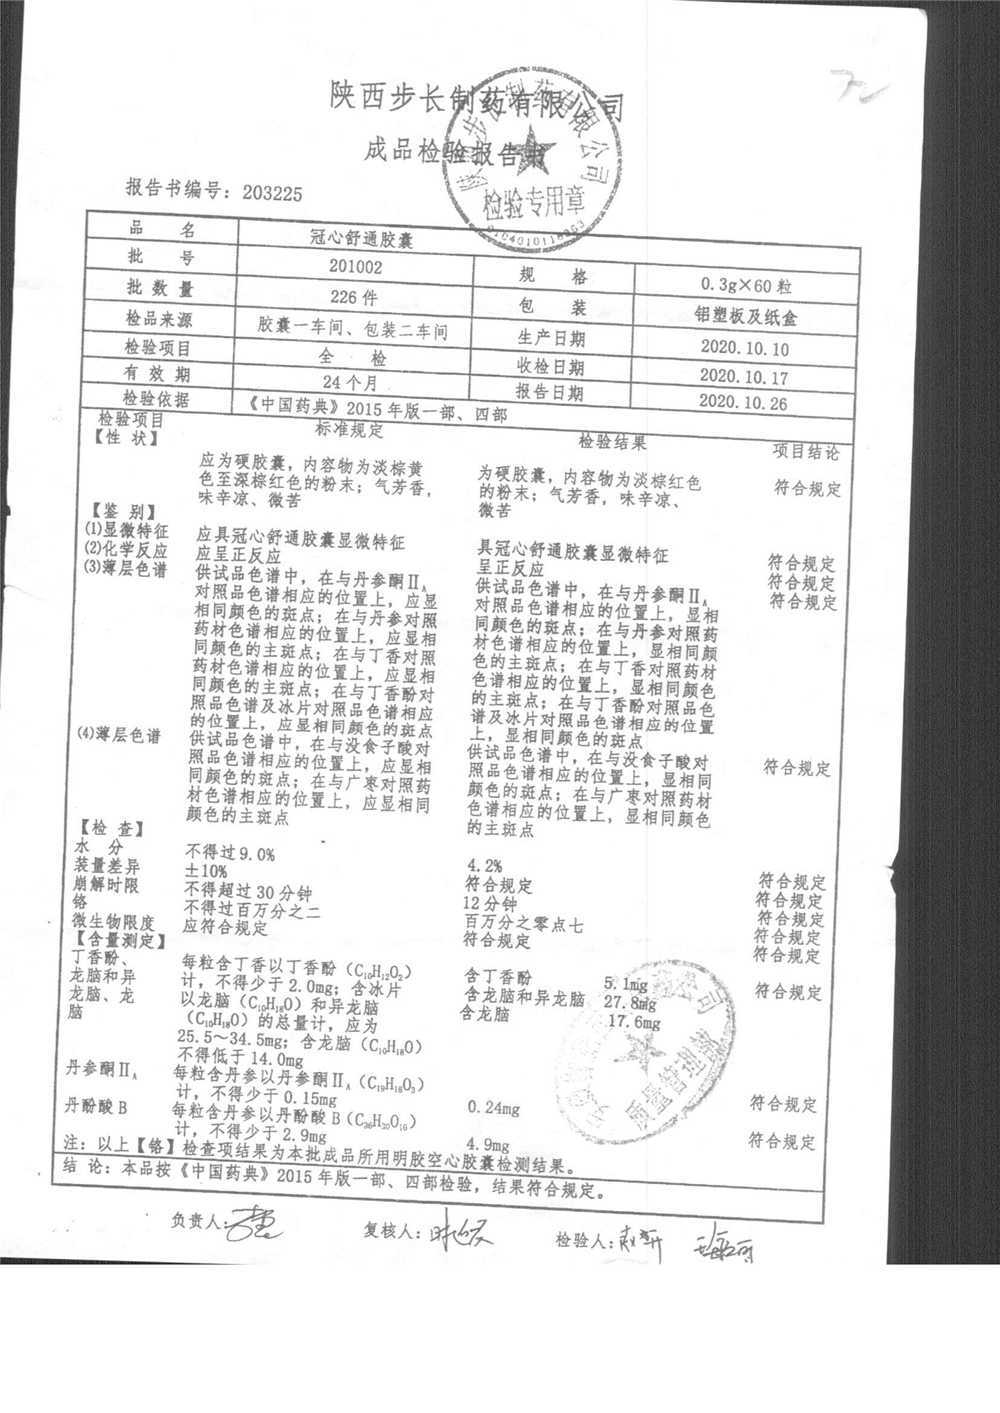 陕西步长制药有限公司
成品检验报告书
检验专用章
报告书编号：203225
品 名 冠心舒通胶囊
批 号 201002 规 格 0.3g×60粒
批 数 量 226件 包 装 铝塑板及纸盒
检品来源 胶囊一车间、包装二车间 生产日期 2020.10.10
检验项目 全 检 收检日期 2020.10.17
有 效 期 24个月 报告日期 2020.10.26
检验依据 《中国药典》2015年版一部、四部
检验项目 标准规定 检验结果 项目结论
【性 状】
应为硬胶囊，内容物为淡棕黄 为硬胶囊，内容物为淡棕红色 符合规定
色至深棕红色的粉末；气芳香， 的粉末；气芳香，味辛凉、
味辛凉、微苦 微苦
【鉴 别】
(1)显微特征 应具冠心舒通胶囊显微特征 具冠心舒通胶囊显微特征 符合规定
(2)化学反应 应呈正反应 呈正反应 符合规定
(3)薄层色谱 供试品色谱中，在与丹参酮ⅡA 供试品色谱中，在与丹参酮ⅡA 符合规定
对照品色谱相应的位置上，应显 对照品色谱相应的位置上，显相
相同颜色的斑点；在与丹参对照 同颜色的斑点；在与丹参对照药
药材色谱相应的位置上，应显相 材色谱相应的位置上，显相同颜
同颜色的主斑点；在与丁香对照 色的主斑点；在与丁香对照药材
药材色谱相应的位置上，应显相 色谱相应的位置上，显相同颜色
同颜色的主斑点；在与丁香酚对 的主斑点；在与丁香酚对照品色
照品色谱及冰片对照品色谱相应 谱及冰片对照品色谱相应的位置
的位置上，应显相同颜色的斑点 上，显相同颜色的斑点
(4)薄层色谱 供试品色谱中，在与没食子酸对 供试品色谱中，在与没食子酸对 符合规定
照品色谱相应的位置上，应显相 照品色谱相应的位置上，显相同
同颜色的斑点；在与广枣对照药 颜色的斑点；在与广枣对照药材
材色谱相应的位置上，应显相同 色谱相应的位置上，显相同颜色
颜色的主斑点 的主斑点
【检 查】
水 分 不得过9.0% 4.2% 符合规定
装量差异 ±10% 符合规定 符合规定
崩解时限 不得超过30分钟 12分钟 符合规定
铬 不得过百万分之二 百万分之零点七 符合规定
微生物限度 应符合规定 符合规定 符合规定
【含量测定】
丁香酚、 每粒含丁香以丁香酚（C10H12O2） 含丁香酚 5.1mg 符合规定
龙脑和异 计，不得少于2.0mg；含冰片 含龙脑和异龙脑 27.8mg
龙脑、龙 以龙脑（C10H18O）和异龙脑 含龙脑 17.6mg
脑 （C10H18O）的总量计，应为
25.5～34.5mg；含龙脑（C10H18O）
不得低于14.0mg
丹参酮ⅡA 每粒含丹参以丹参酮ⅡA（C19H18O3） 0.24mg 符合规定
计，不得少于0.15mg
丹酚酸B 每粒含丹参以丹酚酸B（C36H30O16） 4.9mg 符合规定
计，不得少于2.9mg
注：以上【铬】检查项结果为本批成品所用明胶空心胶囊检测结果。
结 论：本品按《中国药典》2015年版一部、四部检验，结果符合规定。
负责人： 复核人： 检验人：